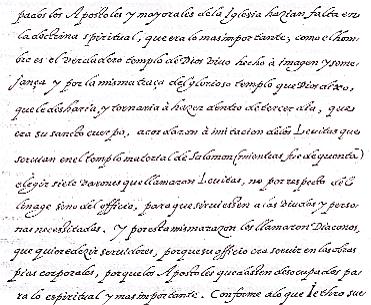 pados los Apostoles y mayorales de la Iglesia hazian falta en
la doctrina spiritual, que era lo mas importante; como el hom
bre es el verdadero templo de Dios vivo hecho à imagen y seme
jança y por la misma traça del glorioso templo que Dios dixo,
que le desharia, y tornaria à hazer dentro de tercer dia, que
era su sancto cuerpo, acordaron à imitacion de los Levitas que
servian en el templo material de Salomon (mientras fue de
elegir siete varones que llamaron Levitas, no por respecto del
linage sino del officio, para que serviessen a las viudas y perso
nas necessitadas. Y por esta misma razon los llamaron Diaconos,
que quiere dezir servidores, porque su officio era servir en las obras
pias corporales, porque los Apostoles quedassen desocupados pa
ra lo espiritual y mas importante. Conforme a lo que Iethro sue